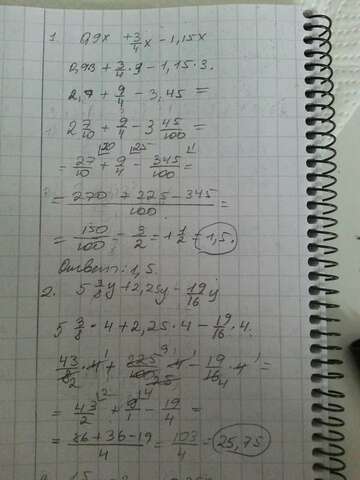 1. 0,9x + 3/4 x - 1,15x
0,9·3 + 3/4 · 3 - 1,15 · 3.
2,7 + 9/4 - 3,45 =
2 7/10 + 9/4 - 3 45/100 =
= 27/10 + 9/4 - 345/100 =
= 270 + 225 - 345/100 =
= 150/100 = 3/2 = 1 1/2 = 1,5.
Ответ: 1,5.
2. 5 3/8 y + 2,25y - 19/16 y
5 3/8 · 4 + 2,25 · 4 - 19/16 · 4.
43/8 · 4 + 225/100 · 4 - 19/16 · 4 =
= 43/2 + 9/1 - 19/4 =
= 86 + 36 - 19/4 = 103/4 = 25,75